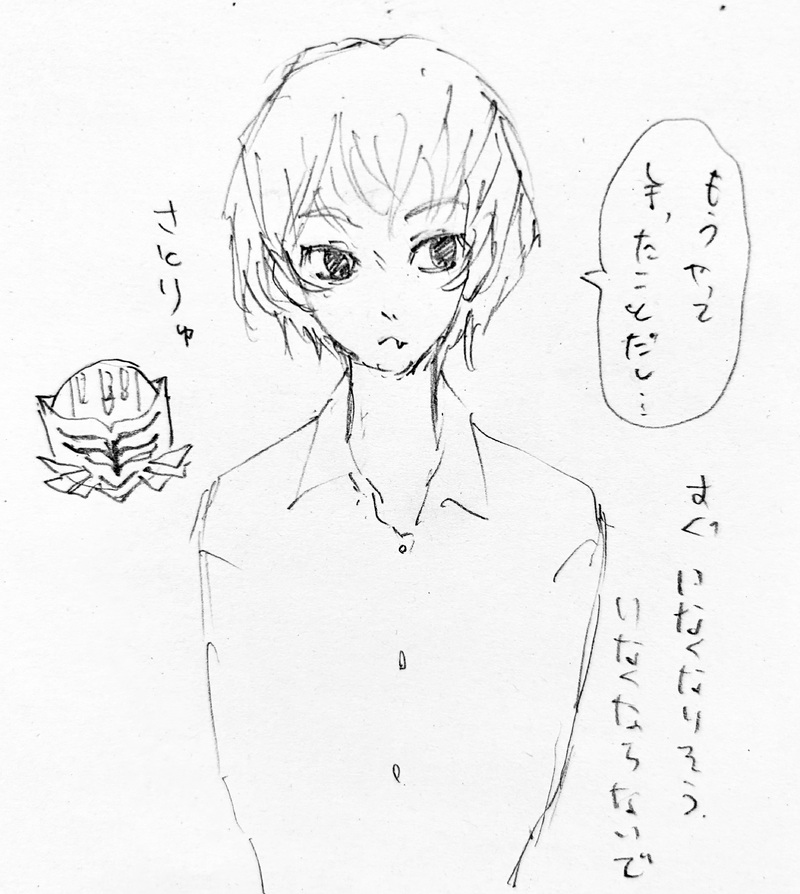 もうやって
きたことだし…
すぐいなくなりそう
いなくならないで
さとりゅ